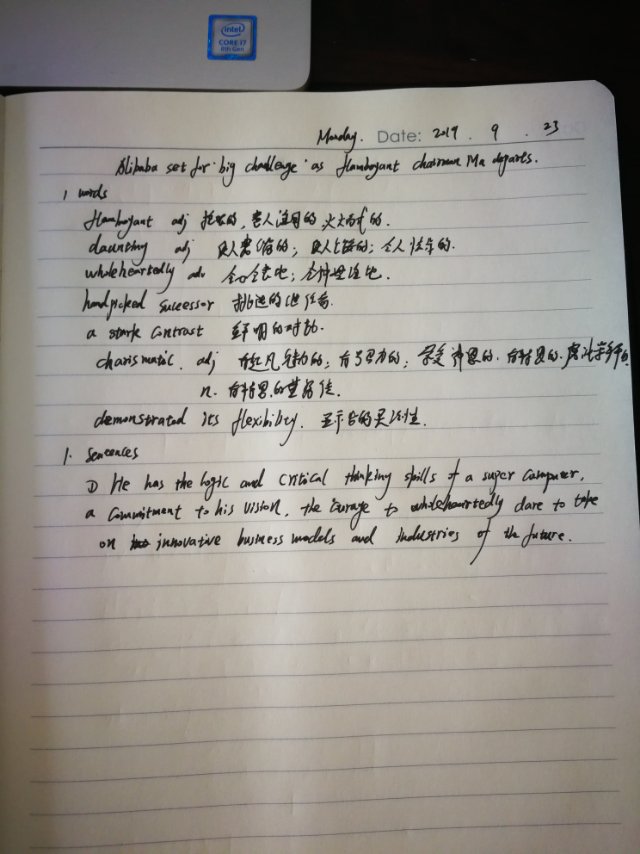 intel
CORE i7
8th Gen
Monday. Date: 2019 . 9 . 23
Alibaba set for 'big challenge' as flamboyant chairman Ma departs.
1 words
flamboyant adj 的, 引人注目的, 火焰式的.
daunting adj 使人畏缩的; 使人气馁的; 令人怯步的.
wholeheartedly adv 全心全意地; 全神贯注地.
handpicked successor 挑选的继任者.
a stark contrast 鲜明的对比.
charismatic. adj 有超凡魅力的; 有号召力的; 神恩的. 的.
n. 有 的基督徒.
demonstrated its flexibility. 显示它的灵活性.
1. Sentences
① He has the logic and critical thinking skills of a super computer,
a commitment to his vision, the courage to wholeheartedly dare to take
on innovative business models and industries of the future.